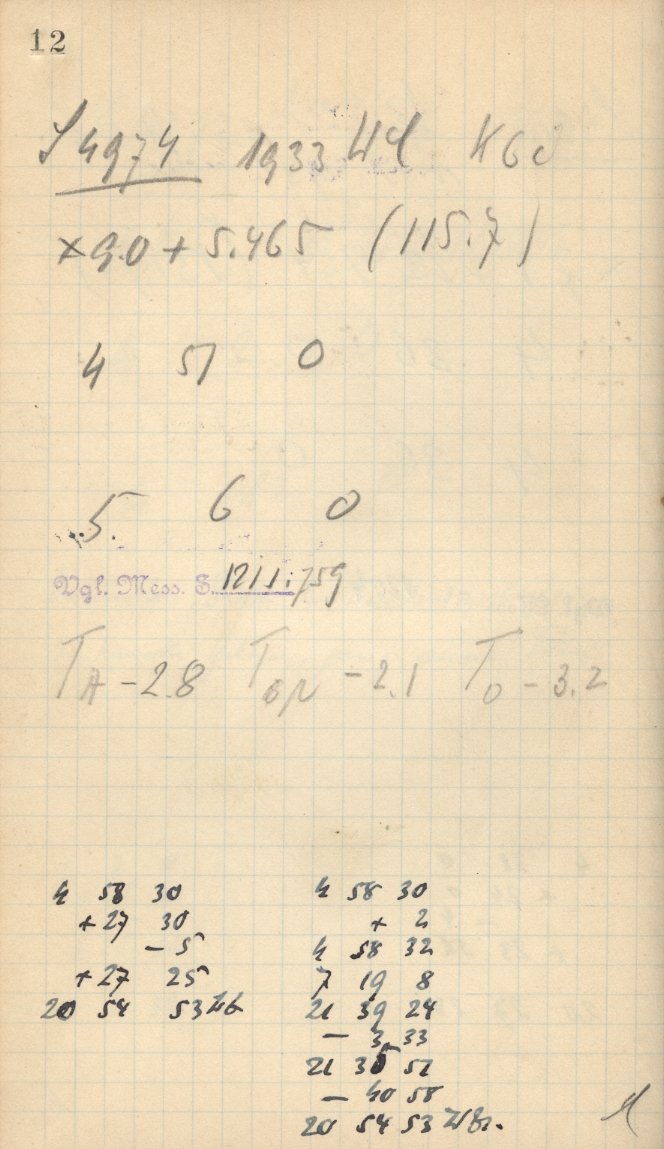 12
S 4974 1933 K6
x 9.0 + 5.465 (115.7)
4 51 0
5. 6 0
Vgl. Mess. S. 1211.759
T -2.8 T -2.1 T -3.2
4 58 30
+27 30
-5
+27 25
20 54 53
4 58 30
+ 2
4 58 32
7 19 8
21 39 24
- 3 33
21 35 51
- 40 58
20 54 53